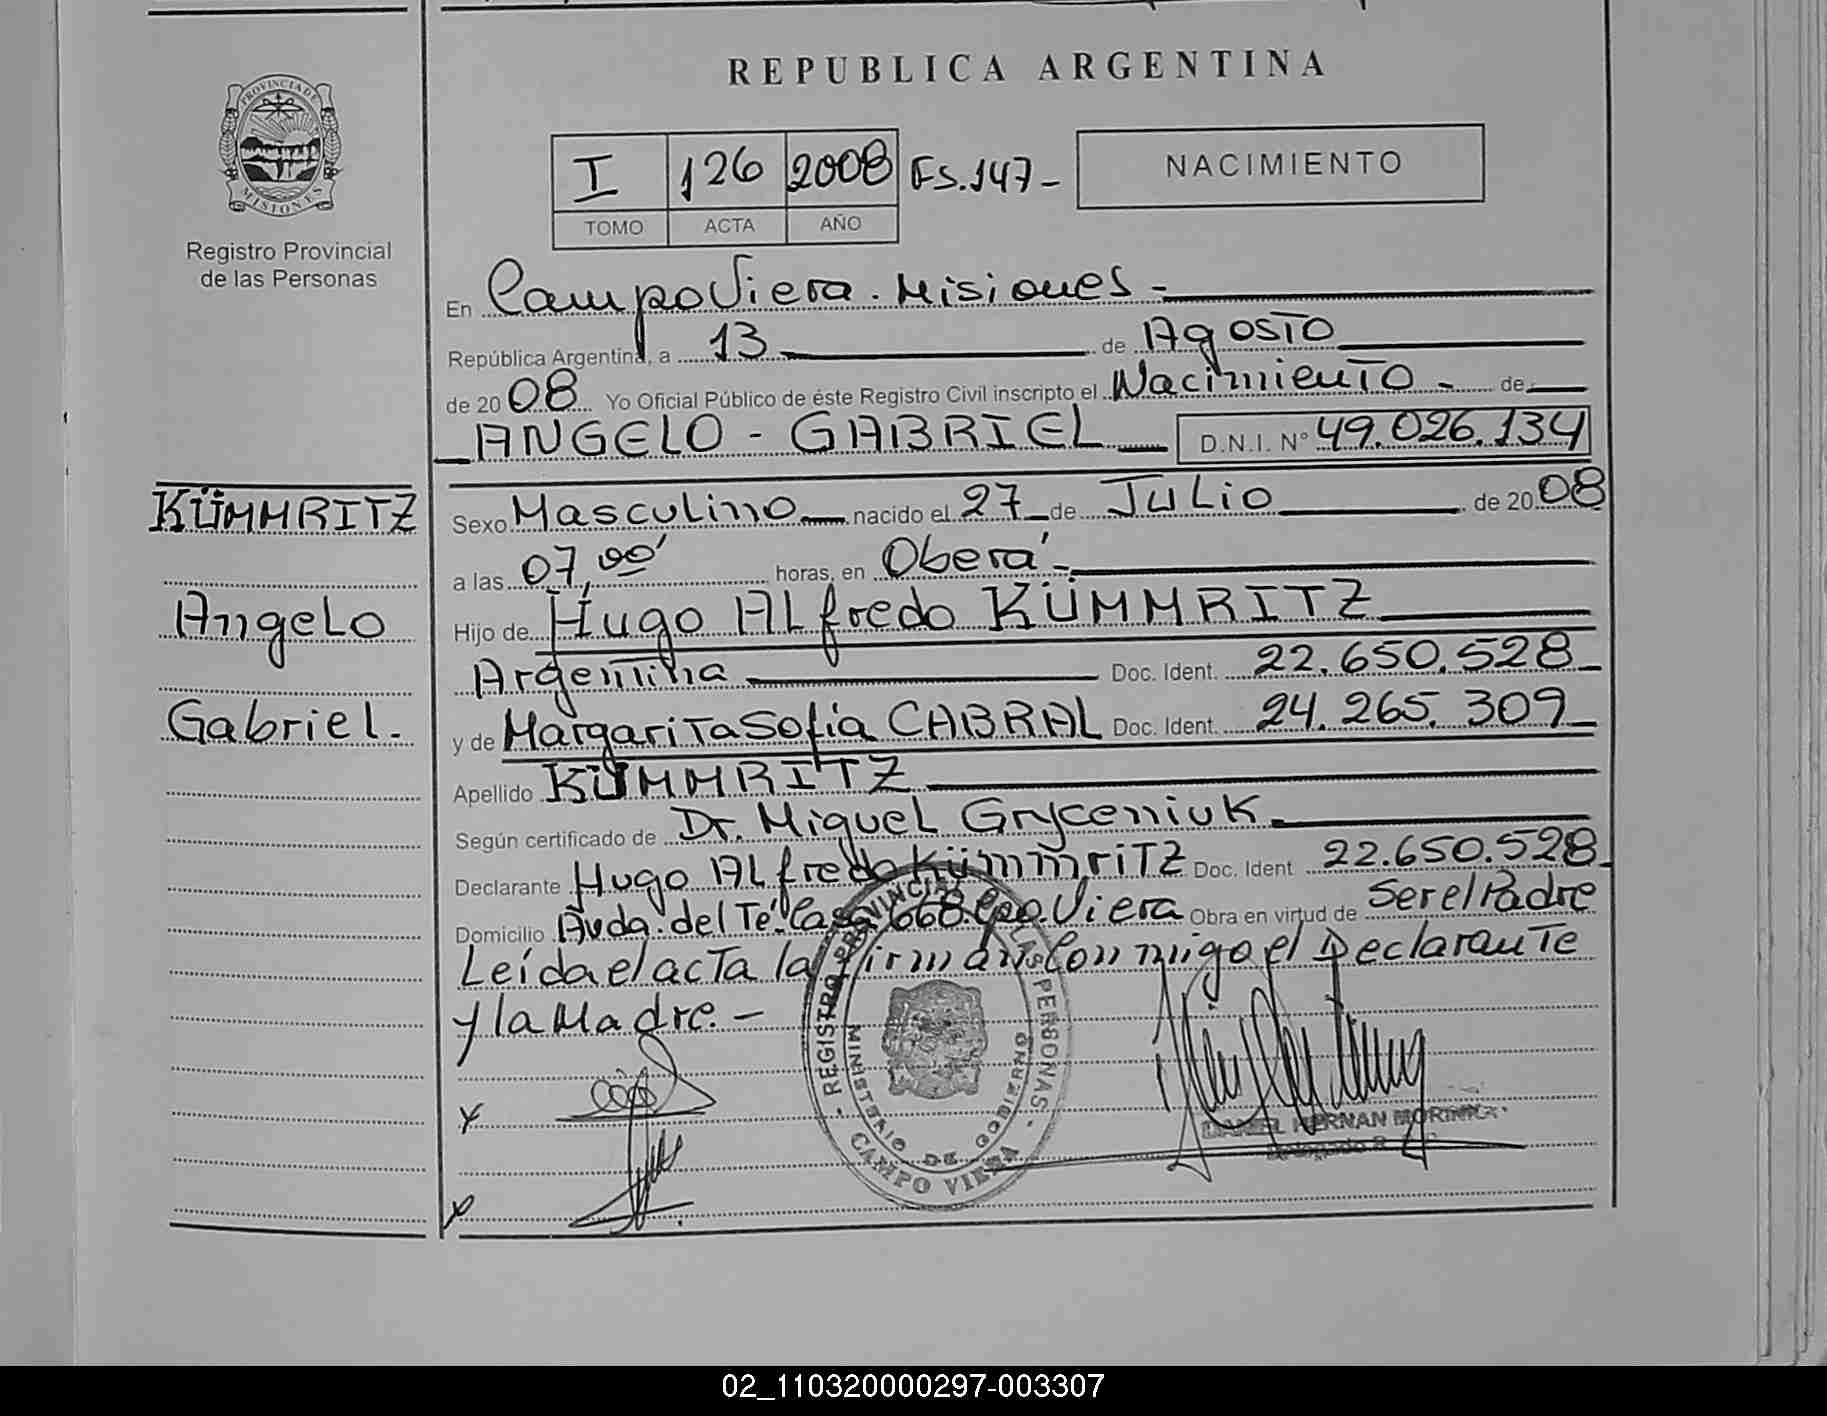 REPUBLICA ARGENTINA
PROVINCIA DE
MISIONES
Registro Provincial
de las Personas
I 126 2008 Fs.147-
TOMO ACTA AÑO
NACIMIENTO
En Campo Viera. Misiones -
República Argentina, a 13 de Agosto
de 2008 Yo Oficial Público de éste Registro Civil inscripto el Nacimiento - de
ANGELO - GABRIEL D.N.I. N° 49.026.134
KÜMMRITZ
Angelo
Gabriel.
Sexo Masculino nacido el 27 de Julio de 2008
a las 07,00' horas, en Oberá -
Hijo de Hugo Alfredo KÜMMRITZ
Argentina Doc. Ident. 22.650.528
y de Margarita Sofía CABRAL Doc. Ident. 24.265.309
Apellido KÜMMRITZ
Según certificado de Dr. Miguel Gryceniuk
Declarante Hugo Alfredo Kümmritz Doc. Ident 22.650.528
Domicilio Avda. del Té. Casa 668. Cpo. Viera Obra en virtud de Ser el Padre
Leída el acta la firman conmigo el Declarante
y la Madre. -
REGISTRO PROVINCIAL DE LAS PERSONAS
MINISTERIO DE GOBIERNO
CAMPO VIERA
DANIEL HERNAN
02_110320000297-003307